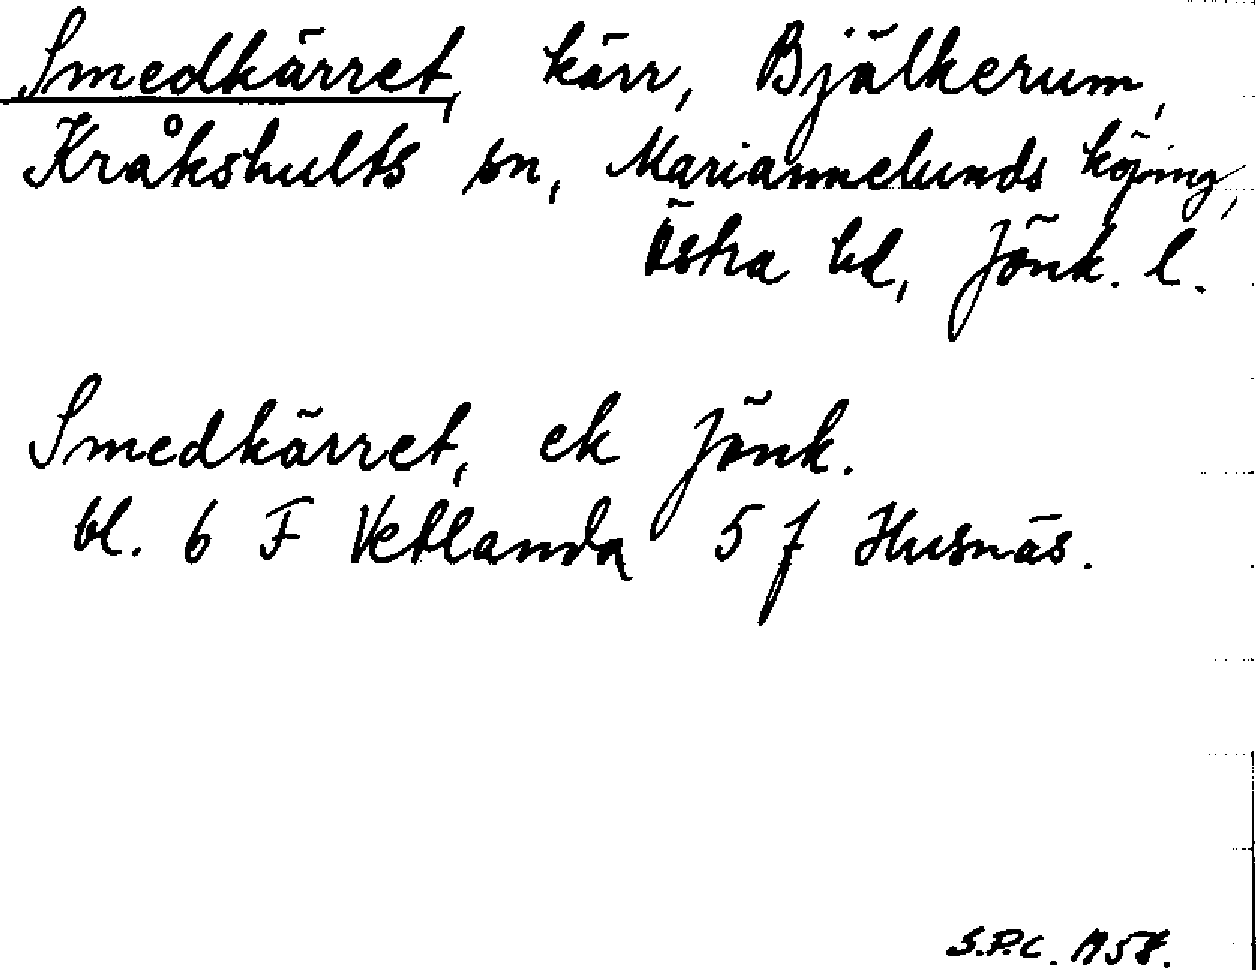 Smedkärret, kärr, Bjälkerum,
Kråkshults sn, Mariannelunds köping,
Östra hd, Jönk. l.
Smedkärret, ek Jönk.
bl. 6 F Vetlanda 5 f Husnäs.
S.P.C. 1958.